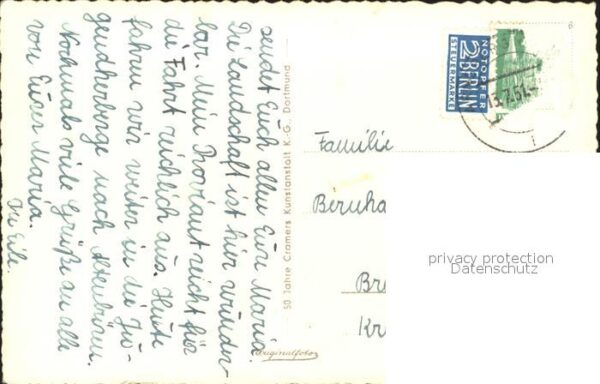 sendet Euch allen Eure Maria.
Die Landschaft ist hier wunder-
bar. Mein Proviant reicht für
die Fahrt reichlich aus. Heute
fahren wir weiter in die Ju-
gendherberge nach
Nochmals viele Grüße an alle
von Eurer Maria.
In Eile.
50 Jahre Cramers Kunstanstalt K.-G., Dortmund
Originalfoto
NOTOPFER
2 BERLIN
STEUERMARKE
Familie
Bernha
Bre
Kr
privacy protection
Datenschutz